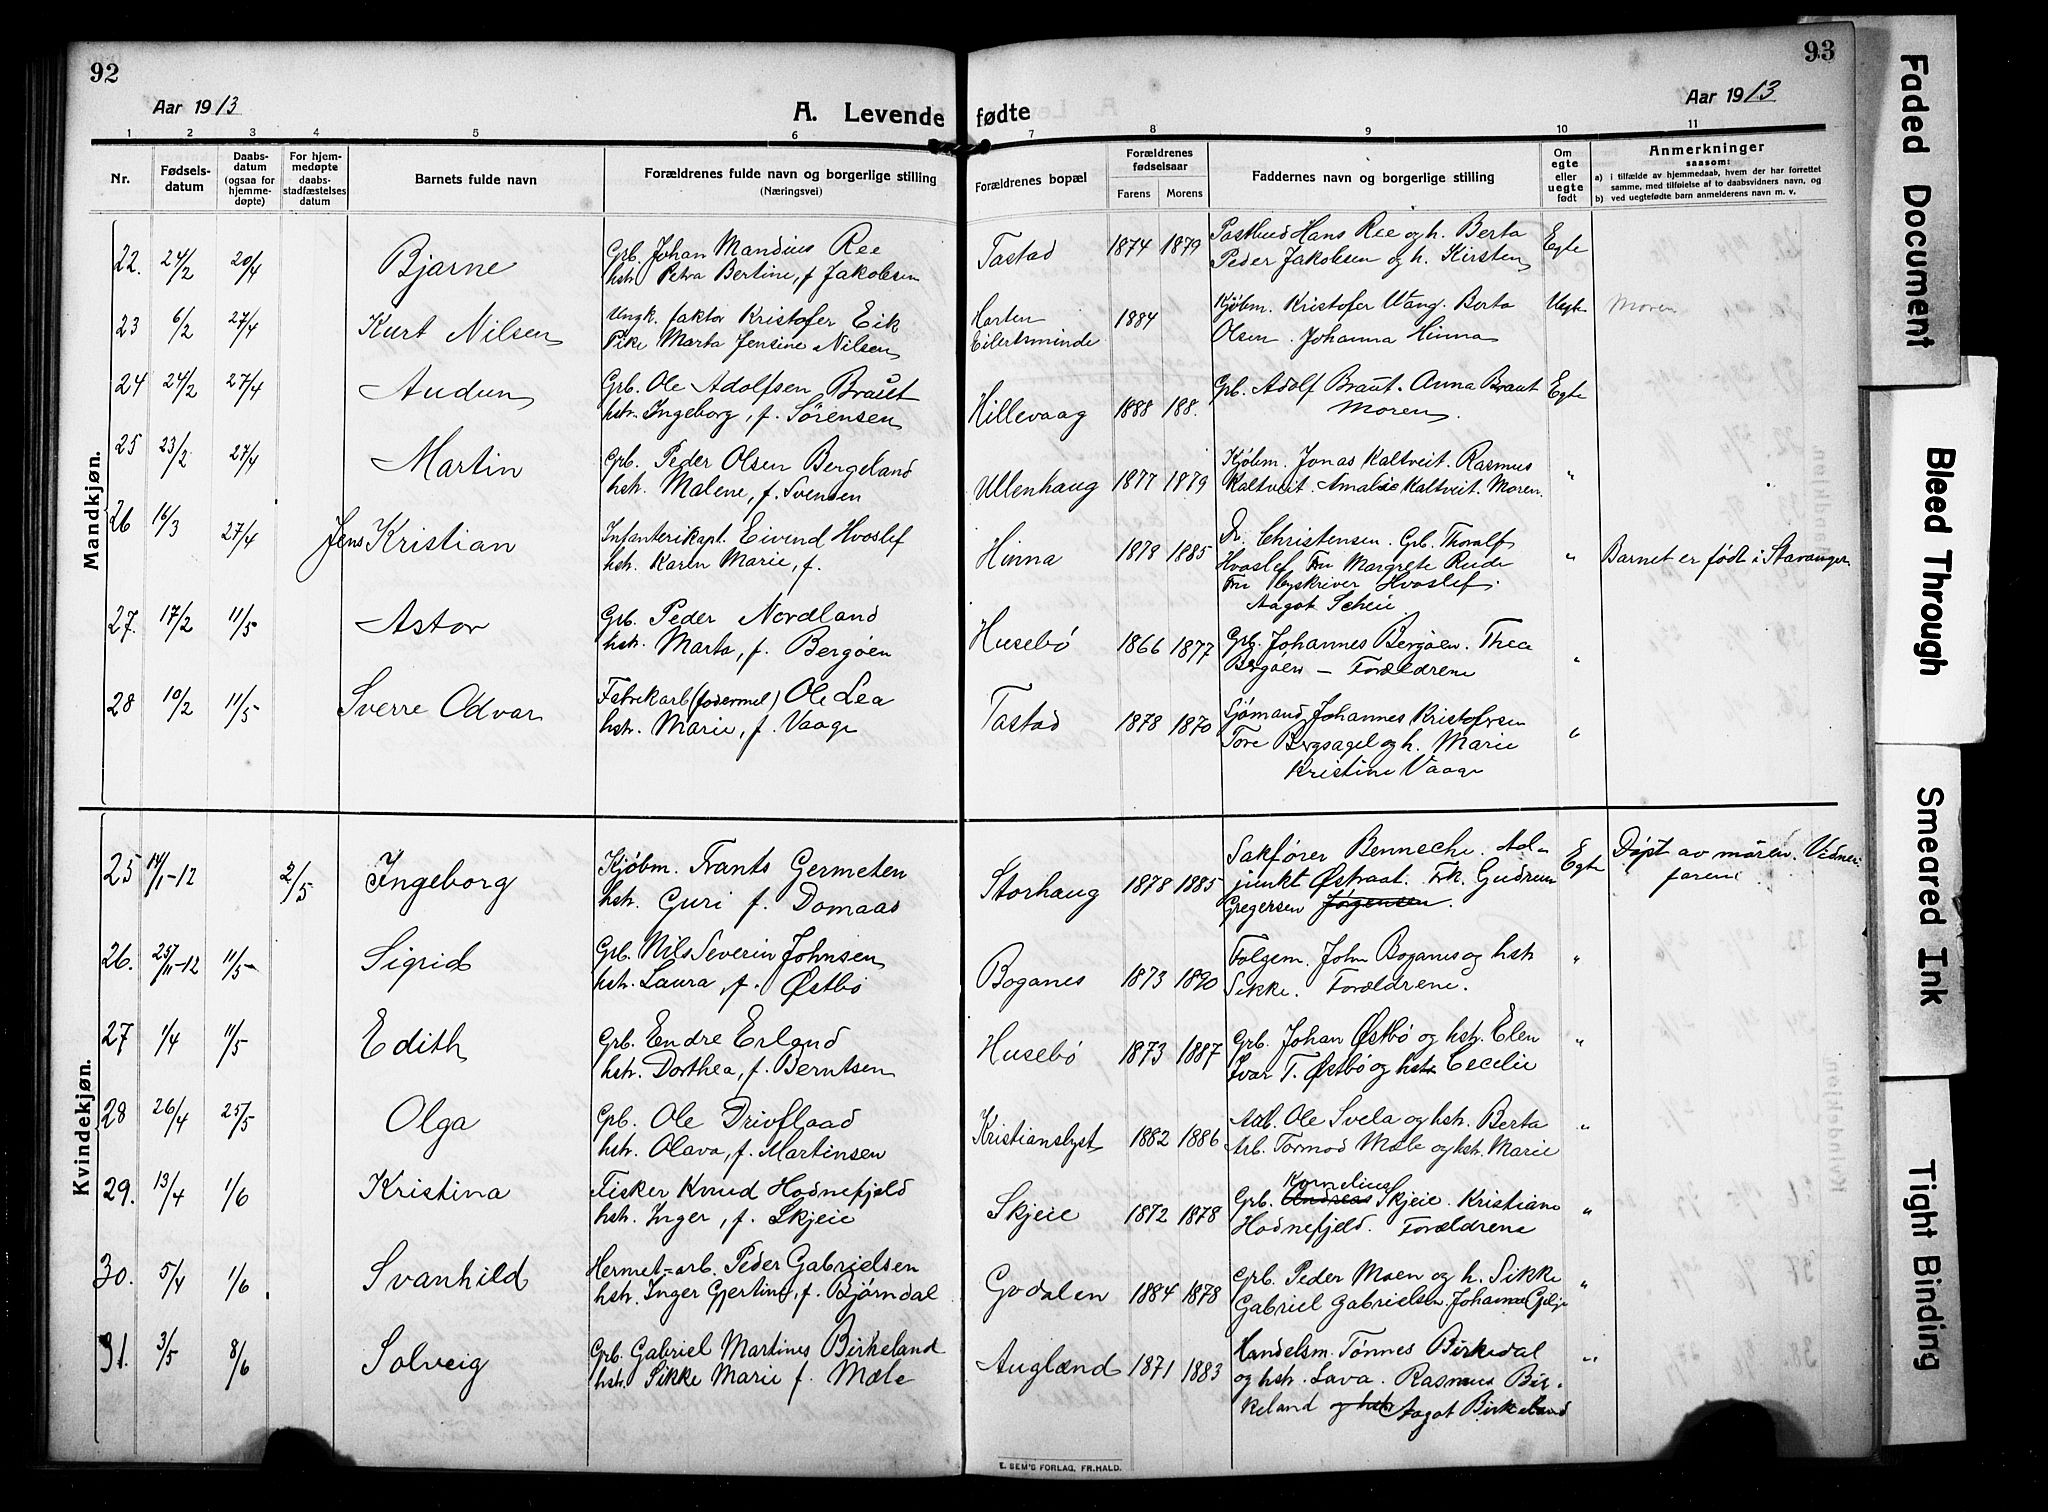 92
Aar 1913
A. Levende
1 2 3 4 5 6
Nr. Fødsels-datum Daabs-datum (ogsaa for hjemme-døpte) For hjem-medøpte daabs-stadfæstelses datum Barnets fulde navn Forældrenes fulde navn og borgerlige stilling (Næringsvei)
Mandkjøn.
22. 24/2 20/4 Bjarne Grb. Johan Mandius Ree
hstr. Petra Bertine, f. Jakobsen
23 6/2 27/4 Kurt Nilsen Ungk. faktor Kristofer Eik
Pike Marta Jensine Nilsen
24 24/2 27/4 Audun Grb. Ole Adolfsen Braut
hstr. Ingeborg, f. Sørensen
25 23/2 27/4 Martin Grb. Peder Olsen Bergeland
hstr. Malene, f. Svensen
26 16/3 27/4 Jens Kristian Infanterikapt. Eivind Hvoslef
hstr. Karen Marie, f.
27. 17/2 11/5 Astor Grb. Peder Nordland
hstr. Marta, f. Bergøen
28 10/2 11/5 Sverre Odvar Fabrikarb (fodermel) Ole Lea
hstr. Marie, f. Vaage
Kvindekjøn.
25 14/1-12 2/5 Ingeborg Kjøbm. Frants Germeten
hstr. Guri f. Domaas
26. 25/11-12 11/5 Sigrid Grb. Nils Severin Johnsen
hstr. Laura, f. Østbø
27 1/4 11/5 Edith Grb. Endre Erland
hstr. Dorthea, f. Berntsen
28 26/4 25/5 Olga Grb. Ole Drivflaad
hstr. Olava, f. Martinsen
29. 13/4 1/6 Kristina Fisker Knud Hodnefjeld
hstr. Inger, f. Skjeie
30. 5/4 1/6 Svanhild Hermet-arb. Peder Gabrielsen
hstr. Inger Gjertine, f. Bjørndal
31. 3/5 8/6 Solveig Grb. Gabriel Martines Birkeland
hstr. Sikke Marie f. Mæle
93
Aar 1913
fødte
7 8 9 10 11
Forældrenes bopæl Forældrenes fødselsaar Farens Morens Faddernes navn og borgerlige stilling Om egte eller uegte født Anmerkninger
saasom:
a) i tilfælde av hjemmedaab, hvem der har forrettet
samme, med tilføielse af to daabsvidners navn, og
b) ved uegtefødte barn anmelderens navn m. v.
Tastad 1874 1879 Postbud Hans Ree og h. Berta Egte
Peder Jakobsen og h. Kirsten
Eilertsminde 1884 Kjøbm. Kristofer Wang. Berta Uegte Moren
Olsen. Johanna Hinna
Hillevaag 1888 188. Grb. Adolf Braut. Anna Braut Egte
Moren.
Ullenhaug 1877 1879 Kjøbm. Jonas Kaltveit. Rasmus "
Kaltveit. Amalie Kaltveit. Moren.
Hinna 1878 1885 Dr. Christensen. Grb. Thoralf " Barnet er født i Stavanger
Hvoslef Fru Margrete Rude
Fru Byskriver Hvoslef.
Aagot Scheie
Husebø 1866 1877 Grb. Johannes Bergøen. Thea "
Bergøen – Forældrene
Tastad 1878 1870 Sjømand Johannes Kristofersen "
Tore Bergsagel og h. Marie
Kristine Vaage
Storhaug 1878 1885 Sakfører Benneche. Ad- Egte Døpt av moren. Vidne:
junkt Østraat. Frk. Gudrun faren
Gregersen Jørgensen.
Boganes 1873 1890 Folgem. John Boganes og hstr "
Sikke. Forældrene.
Husebø 1873 1887 Grb. Johan Østbø og hstr. Elen "
Ivar T. Østbø og hstr Cecilie
Kristianslyst 1882 1886 Arb. Ole Svela og hstr. Berta "
Arb. Tormod Mæle og hstr. Marie
Kornelius
Skjeie 1872 1878 Grb. Andreas Skjeie. Kristiane "
Hodnefjeld. Forældrene
Godalen 1884 1878 Grb. Peder Moen og h. Sikke "
Gabriel Gabrielsen. Johanne Gilje
Auglænd 1871 1883 Handelsm. Tønnes Birkedal "
og hstr. Lava. Rasmus Bir-
keland og hstr Aagot Birkeland
E. SEM'S FORLAG, FR.HALD.
Faded Document
Bleed Through
Smeared Ink
Tight Binding